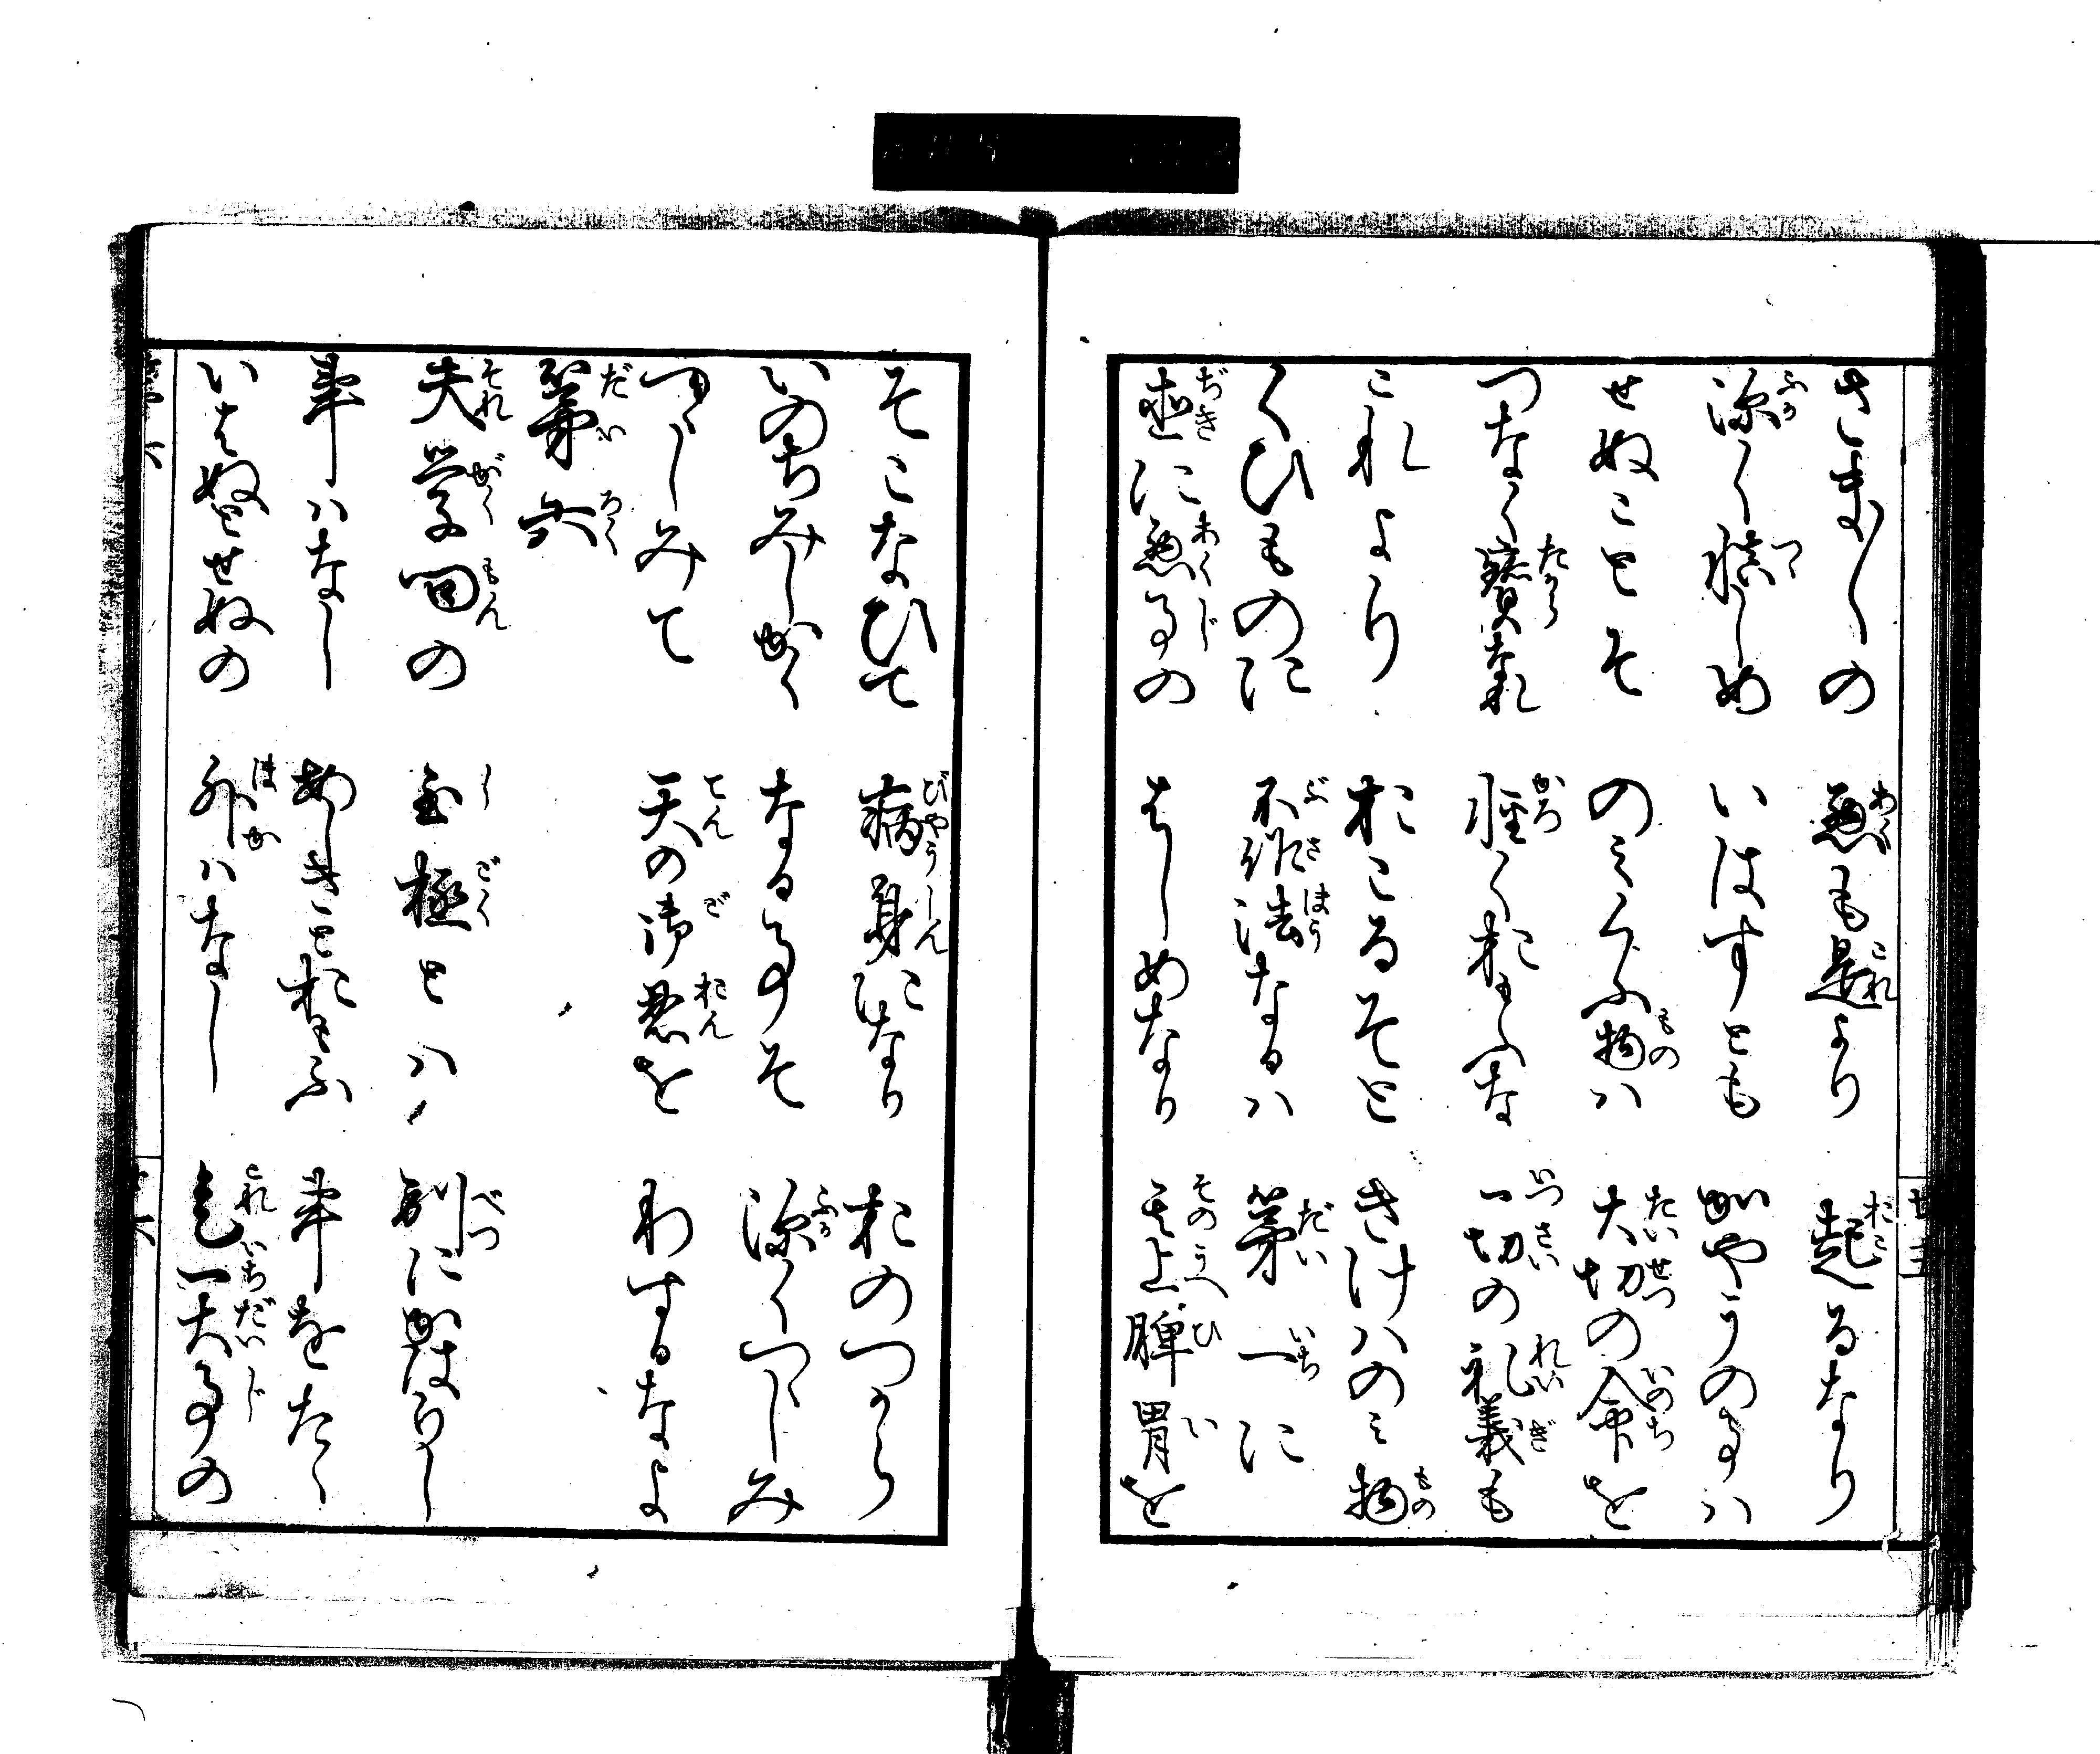 さま〳〵の　悪も是より　起るなり
深く慎しめ　いはすとも　かやうの事ハ
せぬことそ　のみくふ物ハ　大切の命を
つなく寳なれ　軽く思ふな　一切の礼義も
これより　おこるそと　きけハのミ物
くひものに　不作法なるハ　第一に
直に悪事の　はしめなり　其上脾胃を
そこなひて　病身になり　おのつから
いのちみしかく　なる事そ　深くつゝしみ
つゝしみて　天の御恩を　わするなよ
第六
夫学問の　至極とハ　別にかはらし
事ハなし　あしきと思ふ　事をたゝ
いはぬとせぬの　外ハなし　是一大事の